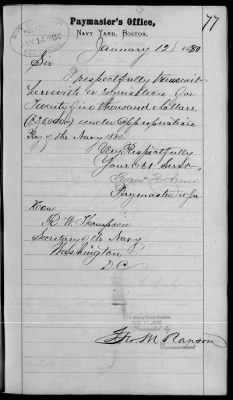 Paymaster's Office,
Navy Yard, Boston,
77
January 12, 1880
Sir
I respectfully transmit
herewith a requisition for
Twenty five thousand dollars,
($25000) under appropriation
Pay of the Navy 1880.
Very Respectfully
Your Obt Servt
Paymaster
Hon.
R. W. Thompson
Secretary of the Navy
Washington
D.C.
Geo. M. Ransom